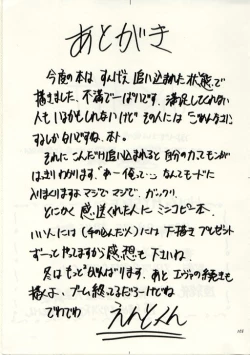 あとがき
今度の本は すんげぇ 追い込まれた状態で
描きました、不満で一ぱいです、満足してくれない
人もいるかもしれないけど その人には ごめんなさい
するしかないですね、ホント。
それに こんだけ追い込まれると 自分の
はっきりわかります、「あー俺って…」なんてモードに
入りまくりますよ マジで マジで、ガックリ、
とにかく 感想くれた人に ミニコピー本、
いい人には (その込んだ人)には 下描き プレゼント
ずーっと やってますから 感想も 下さいね、
冬は もっとがんばります、あと エヴァの続きも
描くよ、ブーム終ってるだろーけどね
でわでわ
えんどくん